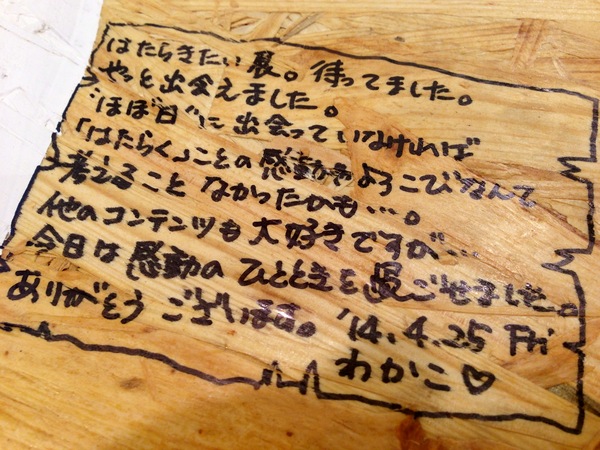 はたらきたい展。待ってました。
やっと出会えました。
"ほぼ日"に出会っていなければ
「はたらく」ことの感動やよろこびなんて
考えること なかったかも…。
他のコンテンツも大好きですが…
今日は感動のひとときを過ごせました。
ありがとうございます。'14.4.25 Fri
わかこ♡